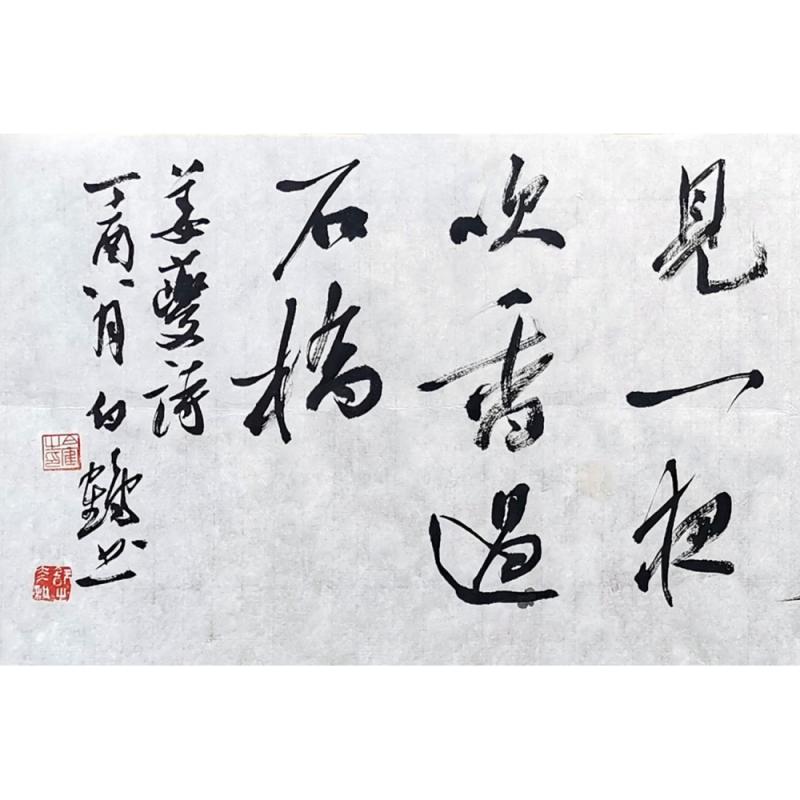 見一夜
吹香過
石橋
姜夔詩
丁酉八月白鶴書